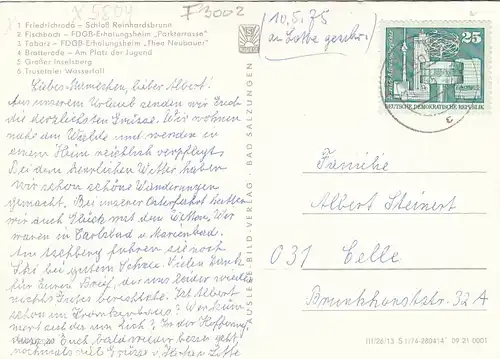 X 5804
F 3002
1 Friedrichroda – Schloß Reinhardsbrunn
2 Fischbach – FDGB-Erholungsheim „Parkterrasse"
3 Tabarz – FDGB-Erholungsheim „Theo Neubauer"
4 Brotterode – Am Platz der Jugend
5 Großer Inselsberg
6 Trusetaler Wasserfall
(10.5.75
an Lotte geschr.)
25
DEUTSCHE DEMOKRATISCHE REPUBLIK
Liebes Annchen, lieber Albert!
Aus unserem Urlaub senden wir Euch
die herzlichsten Grüsse. Wir wohnen
nahe am Walde und werden in
einem Heim reichlich verpflegt.
Bei dem herrlichen Wetter haben
wir schon schöne Wanderungen
gemacht. Bei unserer Osterfahrt hatten
wir auch Glück mit dem Wetter. Wir
waren in Carlsbad u. Marienbad.
Am fuhren sie noch
Ski bei gutem Schnee. Vielen Dank
für Euren Brief, der uns leider wieder
nichts Gutes berichtete. Ist Albert
schon im Krankenhaus? Wer kümmert
sich da um Dich? In der Hoffnung,
dass es Euch bald wieder besser geht,
nochmals viele Grüsse v. u. Lotte
AUSLESE-BILD-VERLAG · BAD SALZUNGEN
Familie
Albert Steinert
031 Celle
Brunkhorststr. 32A
III/26/13 S 1/74-280414 09 21 0001